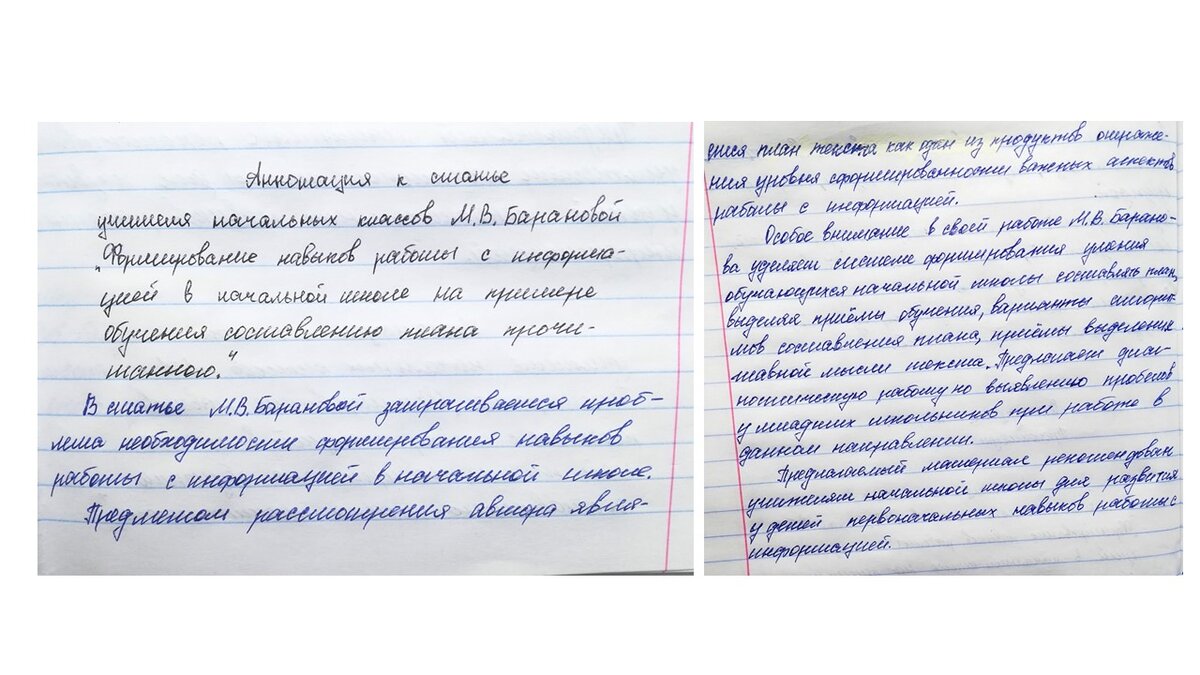 Аннотация к статье
учителя начальных классов М.В. Барановой
"Формирование навыков работы с информа-
цией в начальной школе на примере
обучения составлению плана прочи-
танного."
В статье М.В.Барановой затрагивается проб-
лема необходимости формирования навыков
работы с информацией в начальной школе.
Предметом рассмотрения автора явля-
ется план текста как один из продуктов отраже-
ния уровня сформированности важных аспектов
работы с информацией.
Особое внимание в своей работе М.В. Барано-
ва уделяет системе формирования умения
обучающихся начальной школы составлять план,
выделяя приёмы обучения, варианты алгорит-
мов составления плана, приёмы выделения
главной мысли текста. Предлагает диаг-
ностическую работу по выявлению пробелов
у младших школьников при работе в
данном направлении.
Предлагаемый материал рекомендован
учителям начальной школы для развития
у детей первоначальных навыков работы с
информацией.